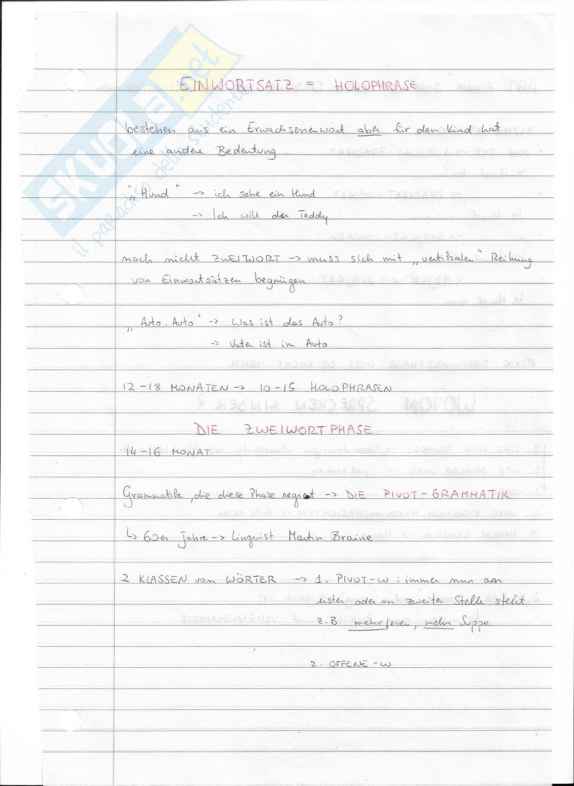 EINWORTSATZ = HOLOPHRASE
bestehen aus ein Erwachsenewort aber für den Kind hat
eine andere Bedeutung
"Hund" -> ich sehe ein Hund
-> Ich will den Teddy
noch nicht ZWEITWORT -> muss sich mit „vertikalen" Reihung
von Einwortsätzen begnügen
„Auto Auto" -> Was ist das Auto?
-> Vater ist in Auto
12-18 MONATEN -> 10-15 HOLOPHRASEN
DIE ZWEIWORTPHASE
14-16 MONAT
Grammatik, die diese Phase -> DIE PIVOT-GRAMMATIK
60er Jahre -> Linguist Martin Braine
2 KLASSEN von WÖRTER -> 1. PIVOT-W: immer nun am
ersten oder an zweiter Stelle steht
z.B. mehr, mehr Suppe
2. OFFENE-W
SKUOLA.net
il paradiso dello studente